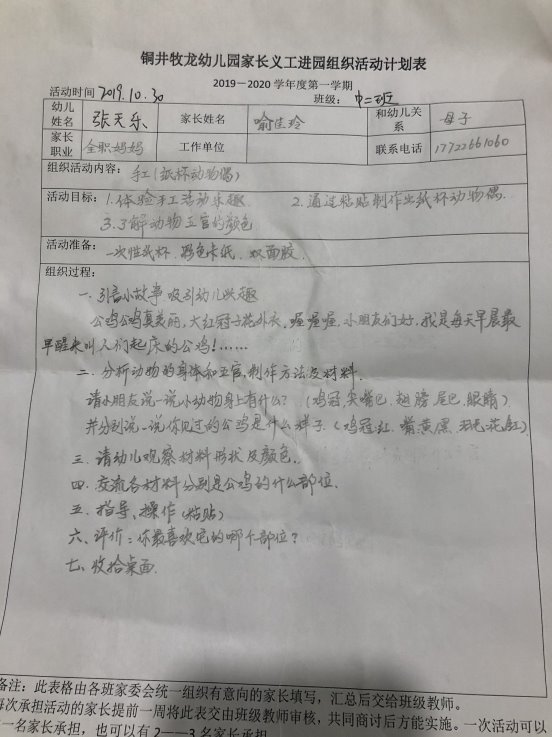 铜井牧龙幼儿园家长义工进园组织活动计划表
2019—2020学年度第一学期
活动时间 2019.10.30 班级：中二班
幼儿姓名 张天乐 家长姓名 喻佳玲 和幼儿关系 母子
家长职业 全职妈妈 工作单位 联系电话 17722661060
组织活动内容： 手工(纸杯动物偶)
活动目标：1.体验手工活动乐趣 2.通过粘贴制作出纸杯动物偶.
3.了解动物五官的颜色
活动准备： 一次性纸杯. 彩色卡纸. 双面胶.
组织过程：
一. 引言小故事 吸引幼儿兴趣
公鸡公鸡真美丽，大红冠子花外衣，喔喔喔，小朋友们好，我是每天早晨最
早醒来叫人们起床的公鸡!……
二. 分析动物的身体和五官,制作方法及材料.
请小朋友说一说小动物身上有什么? (鸡冠,尖嘴巴. 翅膀. 尾巴. 眼睛)
并分别说一说你见过的公鸡是什么样子 (鸡冠红. 嘴黄黑.
三. 请幼儿观察材料形状及颜色.
四. 交流各材料分别是公鸡的什么部位.
五. 指导、操作(粘贴)
六. 评价：你最喜欢它的哪个部位?
七. 收拾桌面.
备注：此表格由各班家委会统一组织有意向的家长填写，汇总后交给班级教师。
每次承担活动的家长提前一周将此表交由班级教师审核，共同商讨后方能实施。一次活动可以
一名家长承担，也可以有2——3名家长承担